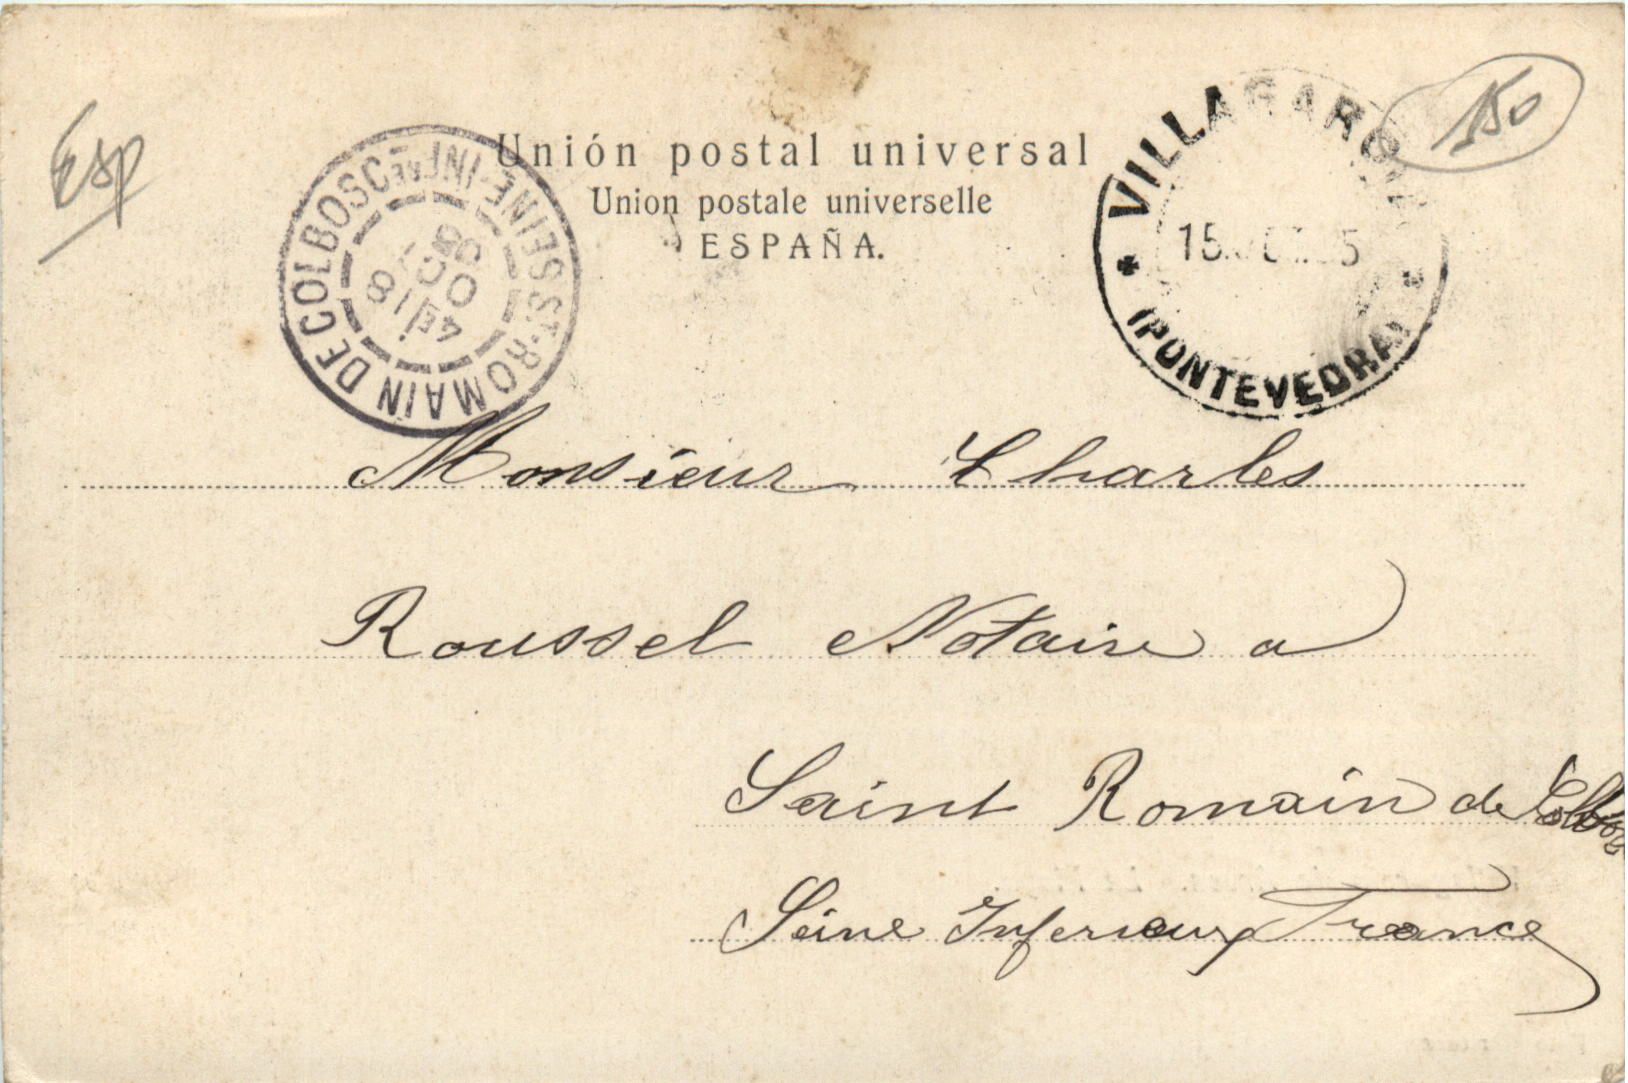 Esp
150
Unión postal universal
Union postale universelle
ESPAÑA.
ST-ROMAIN DE COLBOSC
SEINE-INFRE
4E
18
OCT
05
VILLAGARCIA
(PONTEVEDRA)
Monsieur Charles
Roussel Notaire a
Saint Romain de Colbosc
Seine Inferieux France